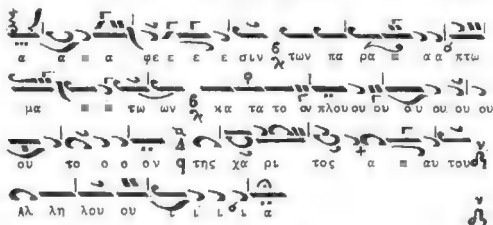 α α α α φε ε ε ε σιν των πα ρα α α α πτω
μα α α τω ων κα τα το ον πλου ου ου ου ου ου ου
ου το ο ο ον της χα ρι τος α α αυ του
Αλ λη λου ου ι ι ι ι α